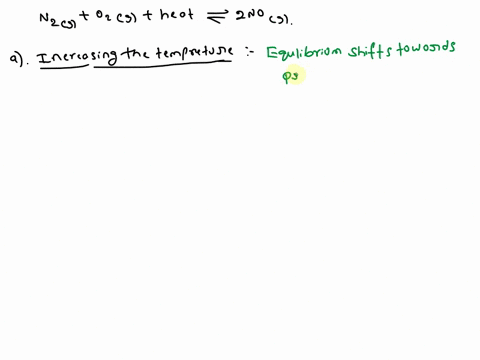 N₂(g) + O₂(g) + heat ⇌ 2NO(g).
a). Increasing the tempreture :- Equlibrium shifts towards